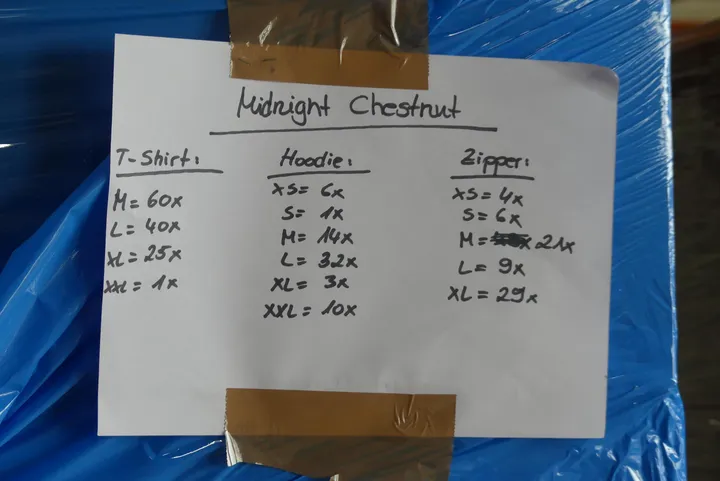 Midnight Chestnut
T-Shirt:
M= 60x
L= 40x
XL= 25x
XXL= 1x
Hoodie:
XS= 6x
S= 1x
M= 14x
L= 32x
XL= 3x
XXL= 10x
Zipper:
XS= 4x
S= 6x
M= 21x
L= 9x
XL= 29x